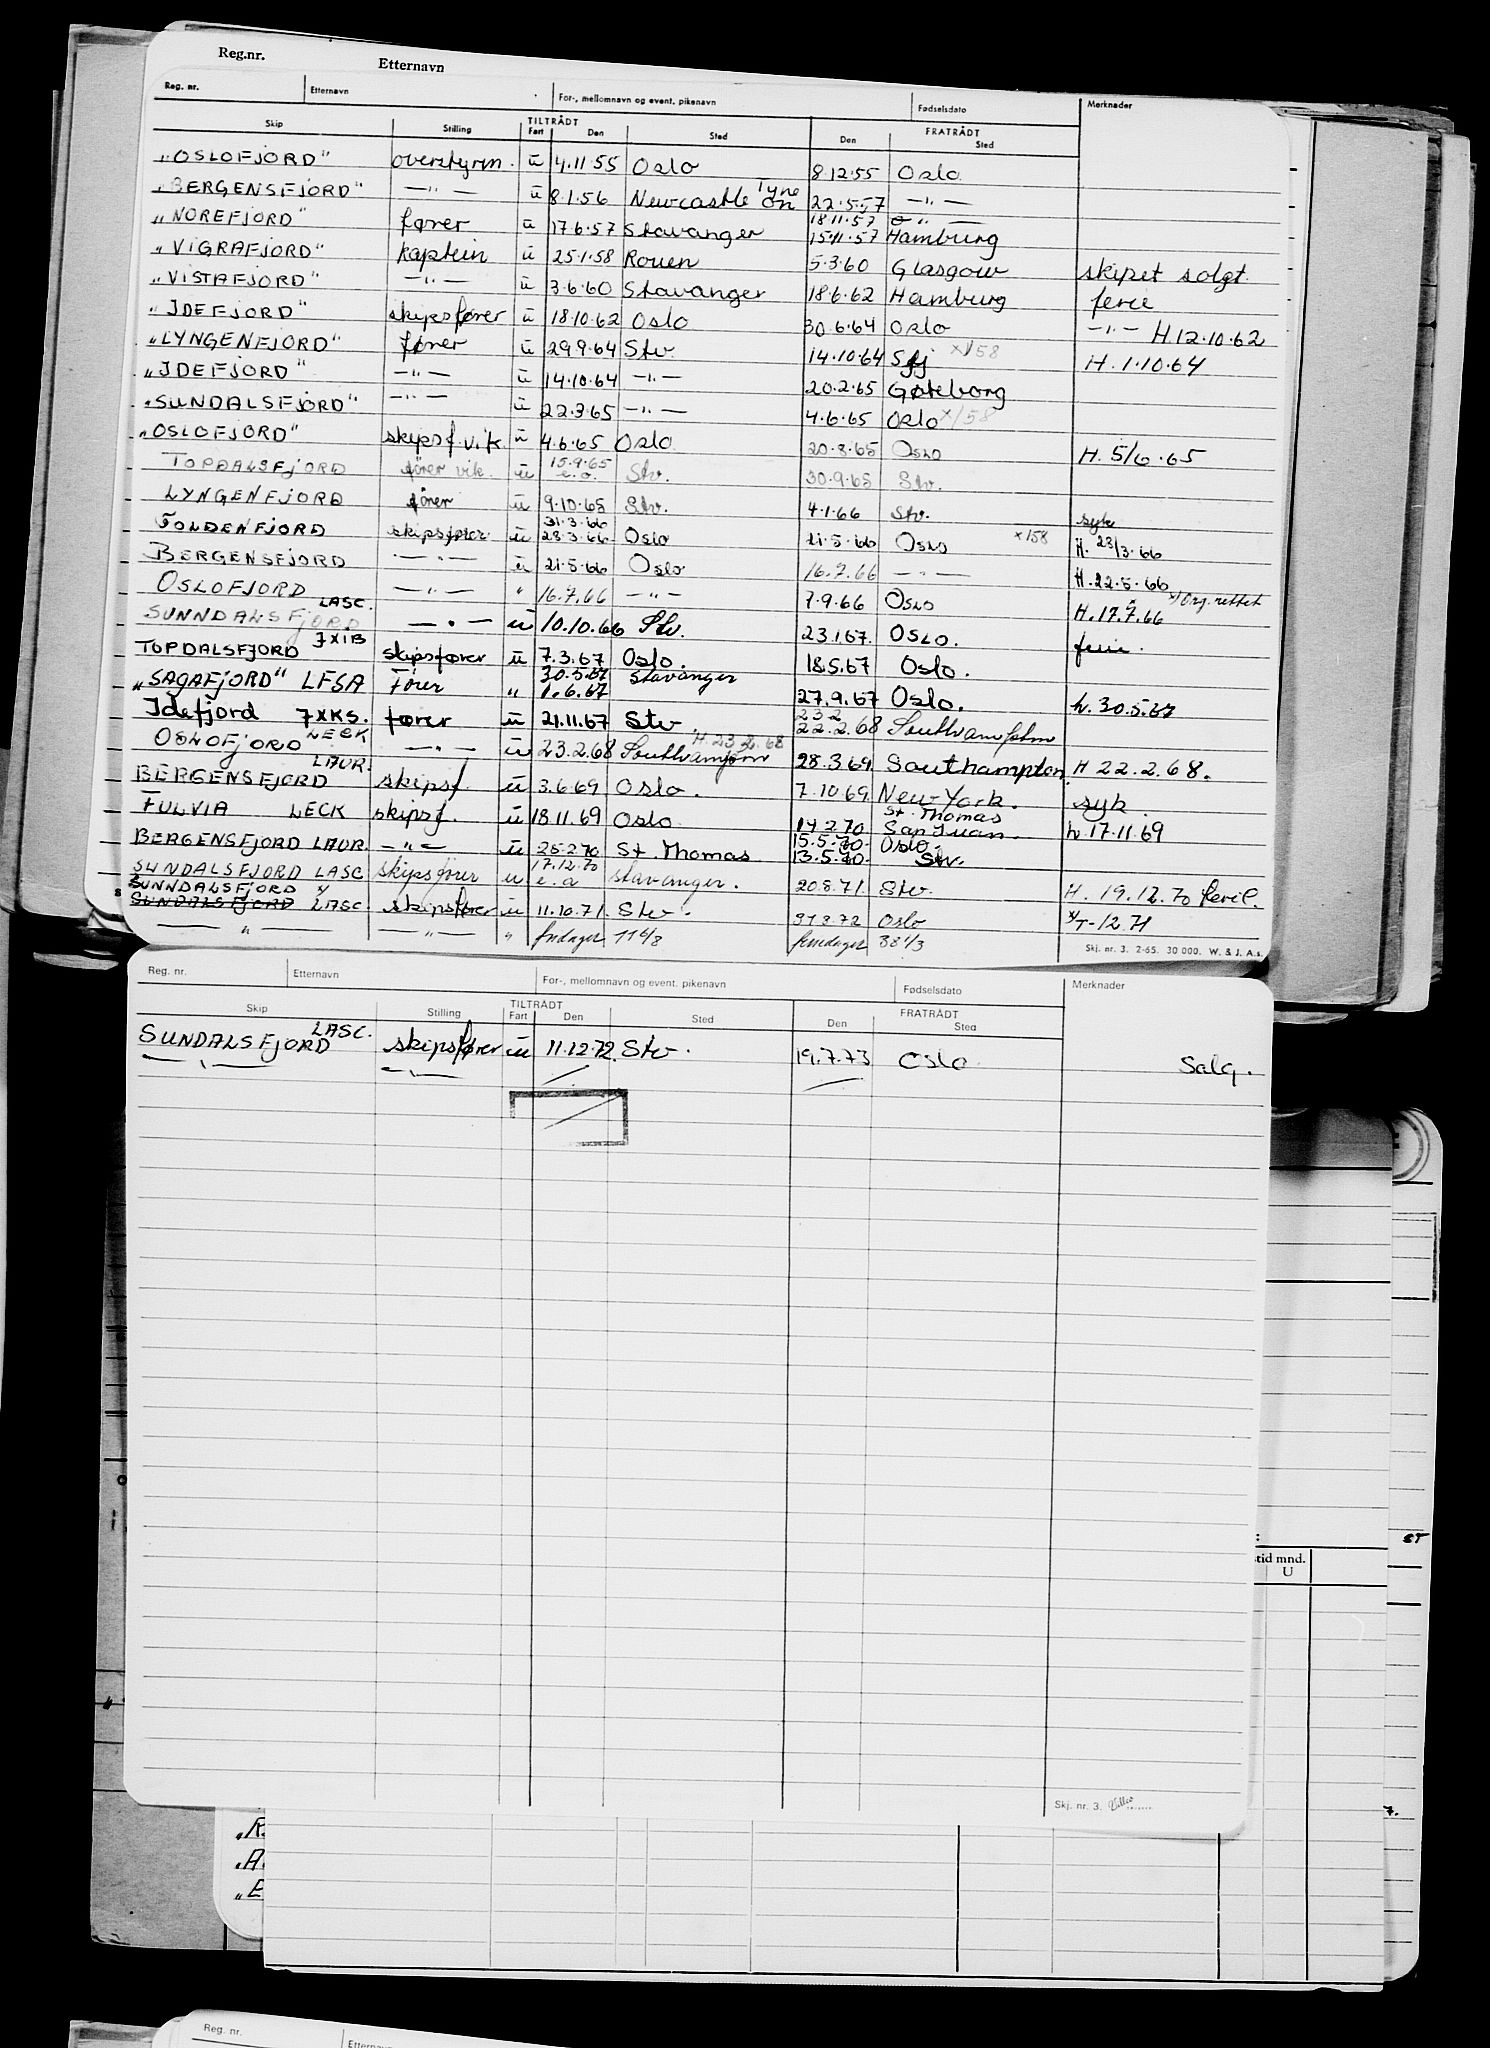 Reg.nr. Etternavn
Reg. nr. Etternavn For-, mellomnavn og event. pikenavn Fødselsdato Merknader
Skip Stilling TILTRÅDT Fart Den Sted FRATRÅDT Den Sted
„OSLOFJORD" overstyrm. u 4.11.55 Oslo 8.12.55 Oslo
„BERGENSFJORD" —"— u 8.1.56 Newcastle on Tyne 22.5.57 —"—
18.11.57 —"—
„NOREFJORD" fører u 17.6.57 Stavanger 15.11.57 Hamburg
„VIGRAFJORD" kaptein u 25.1.58 Rouen 5.3.60 Glasgow skipet solgt
„VISTAFJORD" —"— u 3.6.60 Stavanger 18.6.62 Hamburg ferie
„IDEFJORD" skipsfører u 18.10.62 Oslo 30.6.64 Oslo —"— H.12.10.62
„LYNGENFJORD" fører u 29.9.64 Stv. 14.10.64 Sfj x/58 H.1.10.64
„IDEFJORD" —"— u 14.10.64 —"— 20.2.65 Gøteborg
„SUNDALSFJORD" —"— u 22.3.65 —"— 4.6.65 Oslo x/58
„OSLOFJORD" skipsf.vik. u 4.6.65 Oslo 20.8.65 Oslo H.5/6.65
TOPDALSFJORD fører vik. u 15.9.65 e.o. Stv. 30.9.65 Stv.
LYNGENFJORD fører u 9.10.65 Stv. 4.1.66 Stv. syk
31.3.66
FOLDENFJORD skipsfører u 28.3.66 Oslo 21.5.66 Oslo x158 H.23/3.66
BERGENSFJORD —"— u 21.5.66 Oslo 16.7.66 —"— H.22.5.66
OSLOFJORD —"— " 16.7.66 —"— 7.9.66 Oslo H.17.7.66 x) Org. rettet
SUNNDALSFJORD LASC. —"— u 10.10.66 Stv. 23.1.67 Oslo. ferie.
TOPDALSFJORD JXIB skipsfører u 7.3.67 Oslo. 18.5.67 Oslo.
30.5.67 Stavanger
„SAGAFJORD" LFSA Fører " 1.6.67 27.9.67 Oslo. h.30.5.67
23.2
Idefjord JXKS. fører u 21.11.67 Stv 22.2.68 Southampton
OSLOFJORD LECK —"— u 23.2.68 Southampton H.23.2.68 28.3.69 Southampton H 22.2.68.
BERGENSFJORD LAUR. skipsf. u 3.6.69 Oslo. 7.10.69 New-York. syk
St. Thomas
FULVIA LECK skipsf. u 18.11.69 Oslo 14.2.70 San Juan. h.17.11.69
15.5.70 Oslo.
BERGENSFJORD LAUR. —"— u 25.2.70 St. Thomas 13.5.70. Stv.
SUNDALSFJORD LASC skipsfører u 17.12.70 e.a stavanger. 20.8.71 Stv. H. 19.12.70
SUNNDALSFJORD x/
SUNDALSFJORD LASC. skipsfører u 11.10.71 Stv. 31.8.72 Oslo x/T-12.71
—"— —"— " fridager 11 6/8 feriedager 38 1/3
Skj. nr. 3. 2-65. 30 000. W. & J. A.s.
Reg. nr. Etternavn For-, mellomnavn og event. pikenavn Fødselsdato Merknader
Skip Stilling TILTRÅDT Fart Den Sted FRATRÅDT Den Sted
SUNDALSFJORD LASC. skipsfører u 11.12.72 Stv. 19.7.73 Oslo Salg.
—"— —"—
Skj. nr. 3.
ST
tid mnd.
U
7.
„K.
„A.
„E
Reg. nr. Etternavn